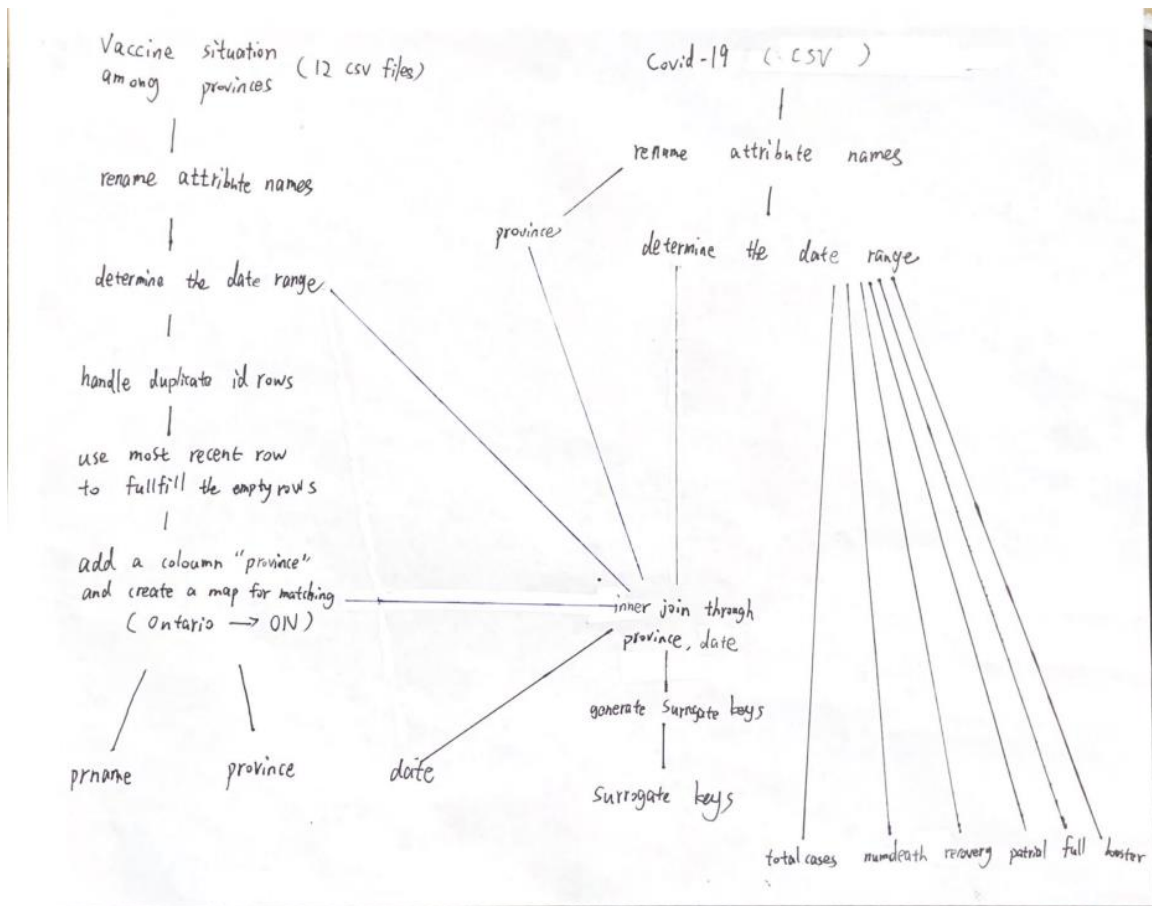 Vaccine situation
among provinces
(12 csv files)
rename attribute names
determine the date range
handle duplicate id rows
use most recent row
to fullfill the empty rows
add a coloumn "province"
and create a map for matching
(Ontario → ON)
prname
province
Covid-19 (.CSV)
rename attribute names
province
determine the date range
inner join through
province, date
generate surrogate keys
surrogate keys
date
total cases
numdeath
recovery
patrial
full
booster